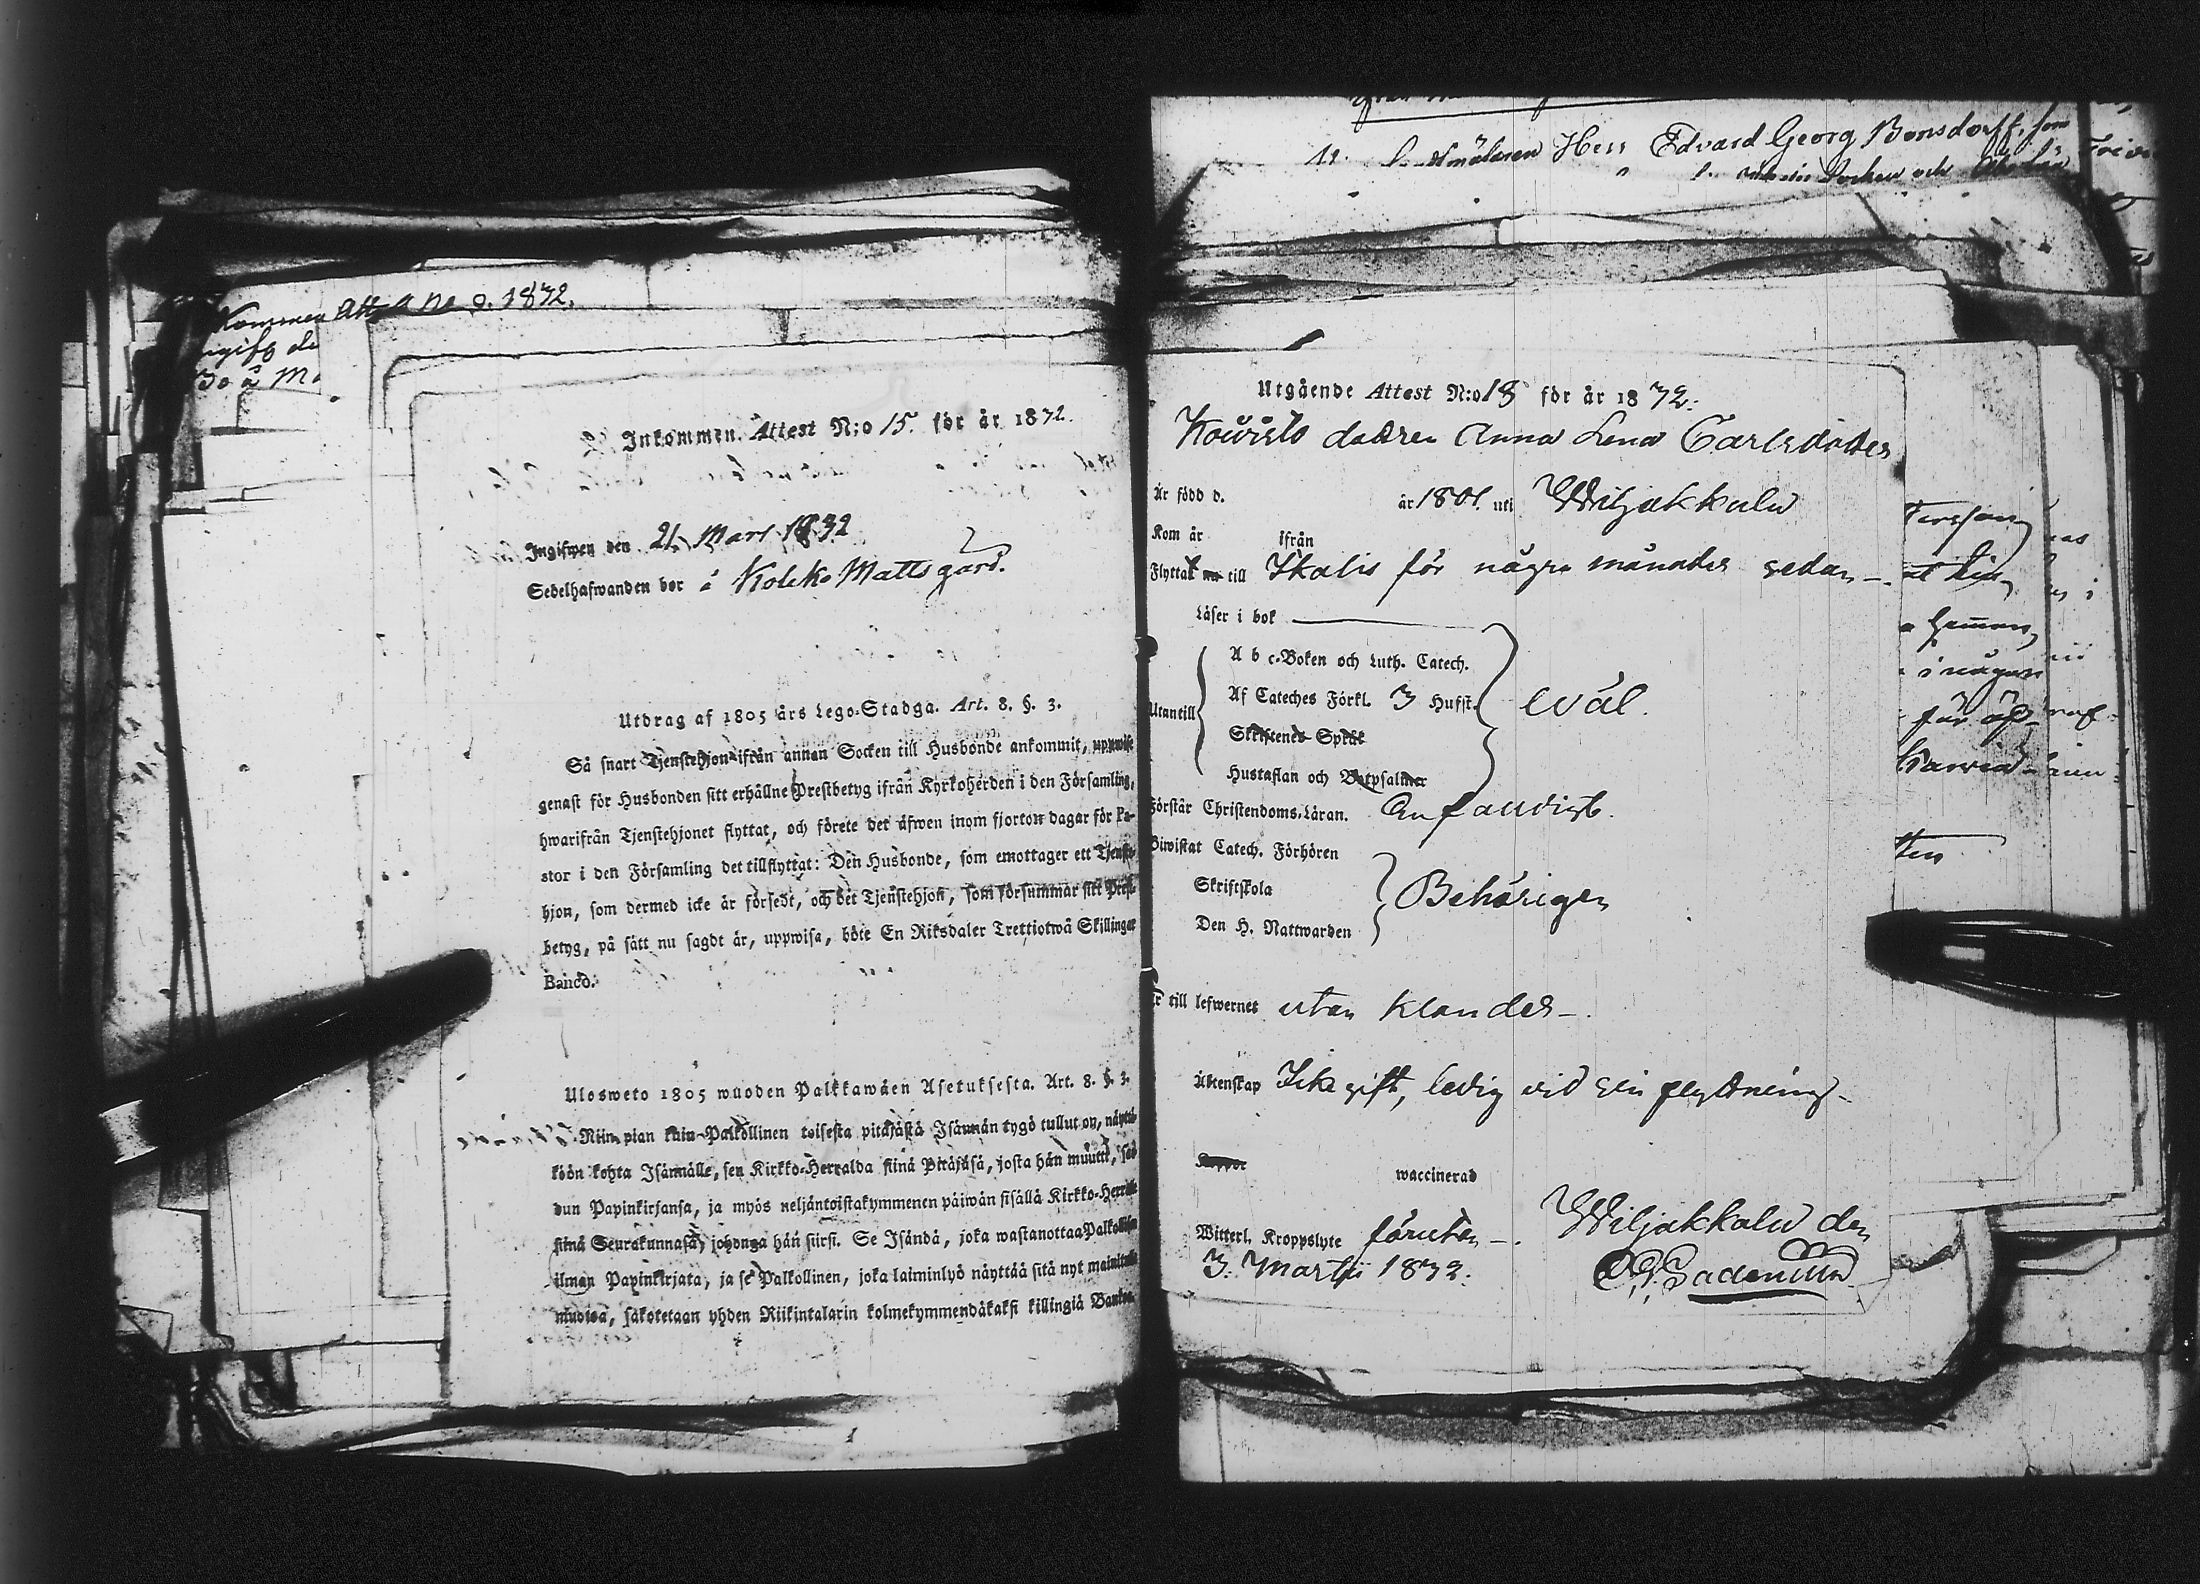 Kommen Att. No 9. 1832.
Inkommen Attest N:o 15. för år 1832.
Ingifwen den 21. Mars 1832
Sedelhafwanden bor å Kolcko Matts gård.
Utdrag af 1805 års Lego-Stadga. Art. 8. §. 3.
Så snart Tjenstehjon ifrån annan Socken till Husbonde ankommit, uppwise
genast för Husbonden sitt erhållne Prestbetyg ifrån Kyrkoherden i den Församling,
hwarifrån Tjenstehjonet flyttat, och förete det äfwen inom fjorton dagar för Pa-
stor i den Församling det tillflyttat: Den Husbonde, som emottager ett Tjenste-
hjon, som dermed icke är försedt, och det Tjenstehjon, som försummar sitt Prest-
betyg, på sätt nu sagdt är, uppwisa, böte En Riksdaler Trettiotwå Skillingar
Banco.
Ulosweto 1805 wuoden Palkkawäen Asetuksesta. Art. 8. §. 3.
Niin pian kuin Palkollinen toisesta pitäjästä Isännän tygö tullut on, näyttä-
köön kohta Isännälle, sen Kirkko-Herralda siinä Pitäjäsä, josta hän muutti, saa-
dun Papinkirjansa, ja myös neljäntoistakymmenen päiwän sisällä Kirkko-Herralle
siinä Seurakunnasa, johonga hän siirsi. Se Isändä, joka wastanottaa Palkollisen
ilman Papinkirjata, ja se Palkollinen, joka laiminlyö näyttää sitä nyt mainitulla
muotoa, sakotetaan yhden Riikintalarin kolmekymmendäkaksi killingiä Bankos.
11. Herr Edvard Georg Bonsdorff, som
Socken och Åbo Län
Utgående Attest N:o 18 för år 1832.
Kouristo dottren Anna Lena Carlsdotter
Är född d. år 1801. uti Wiljakkala
Kom år ifrån
Flyttat nu till Ikalis för några månader sedan –.
Läser i bok
Utantill
A b c-Boken och Luth. Catech.
Af Cateches Förkl. 3 Hufst.
Skriftenes Språk
Hustaflan och Botpsalmer
wäl.
Förstår Christendoms-Läran. Anständigt.
Biwistat Catech. Förhören
Skriftskola
Den H. Nattwarden
Behörigen
Är till lefwernet utan klander –.
Äktenskap Icke gift, ledig vid sin flyttning –
Koppor waccinerad
Witterl. Kroppslyte förutan –. Wiljakkala den
3. Martii 1832.